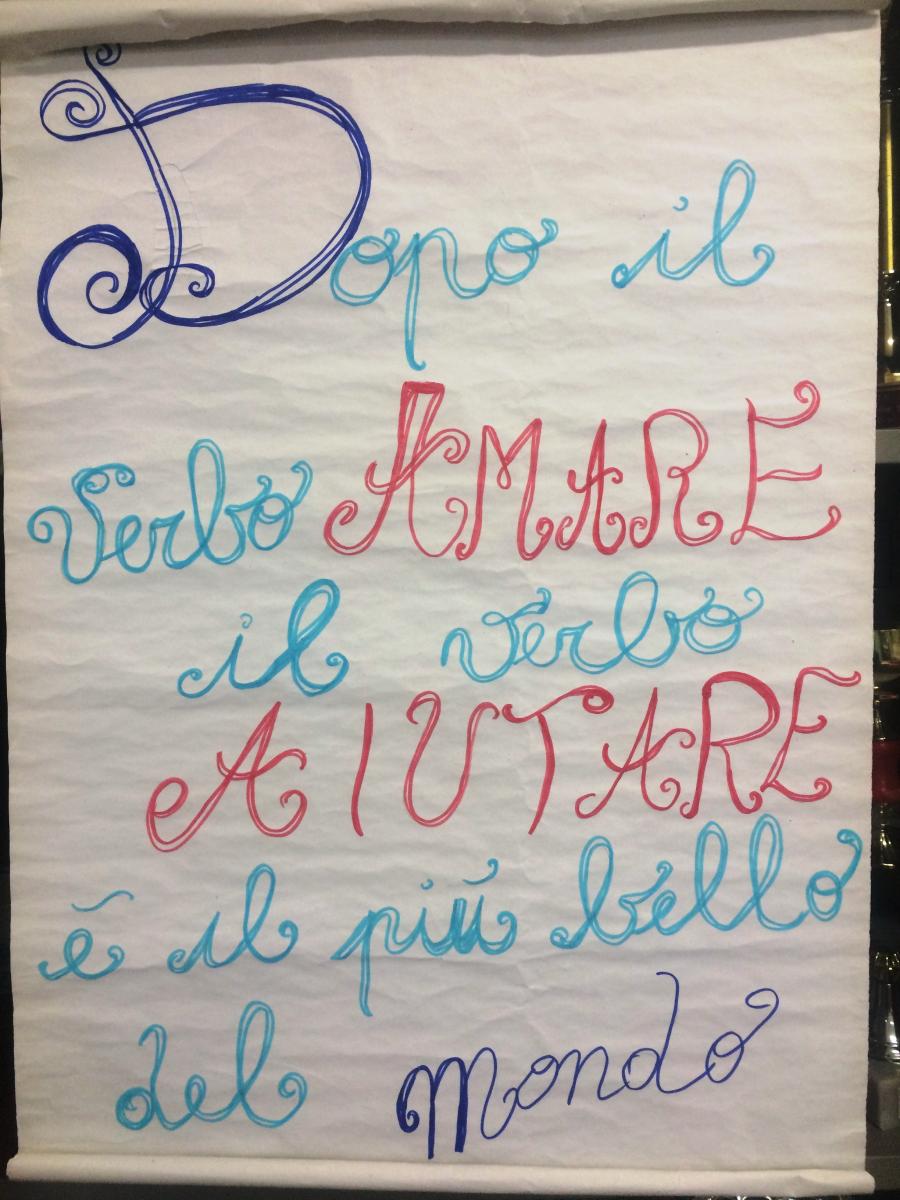 Dopo il
Verbo AMARE
il verbo
AIUTARE
è il più bello
del mondo